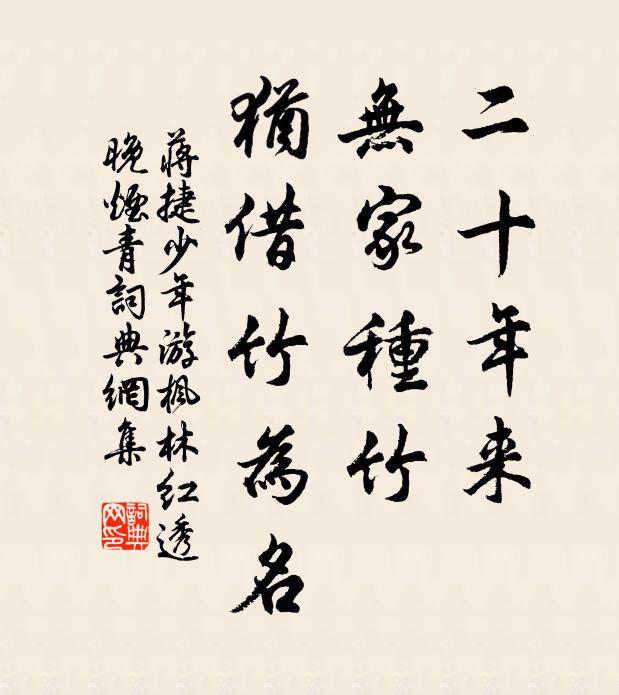 二十年来
無家種竹
猶借竹為名
蔣捷少年游楓林紅透
晚煙青詞典網集
詞典网印